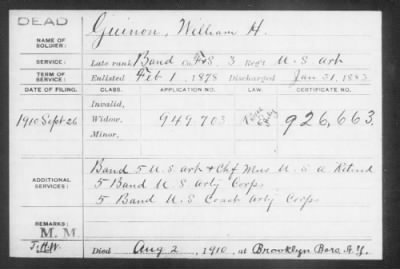 DEAD
NAME OF SOLDIER: Guinon, William H.
SERVICE: Late rank Band Co. F&S 3 Reg't U. S Art
TERM OF SERVICE: Enlisted Feb 1, 1878 Discharged Jan 31, 1883
DATE OF FILING. CLASS. APPLICATION NO. LAW. CERTIFICATE NO.
Invalid,
1910 Sept 26 Widow, 949703 926,663.
Minor,
ADDITIONAL SERVICES:
Band 5 U. S. Art & Chf Mus U. S. A Retired
5 Band U. S Arty Corps
5 Band U. S Coast Arty Corps
REMARKS:
M. M.
Died Aug 2, 1910, at Brooklyn Boro, N.Y.